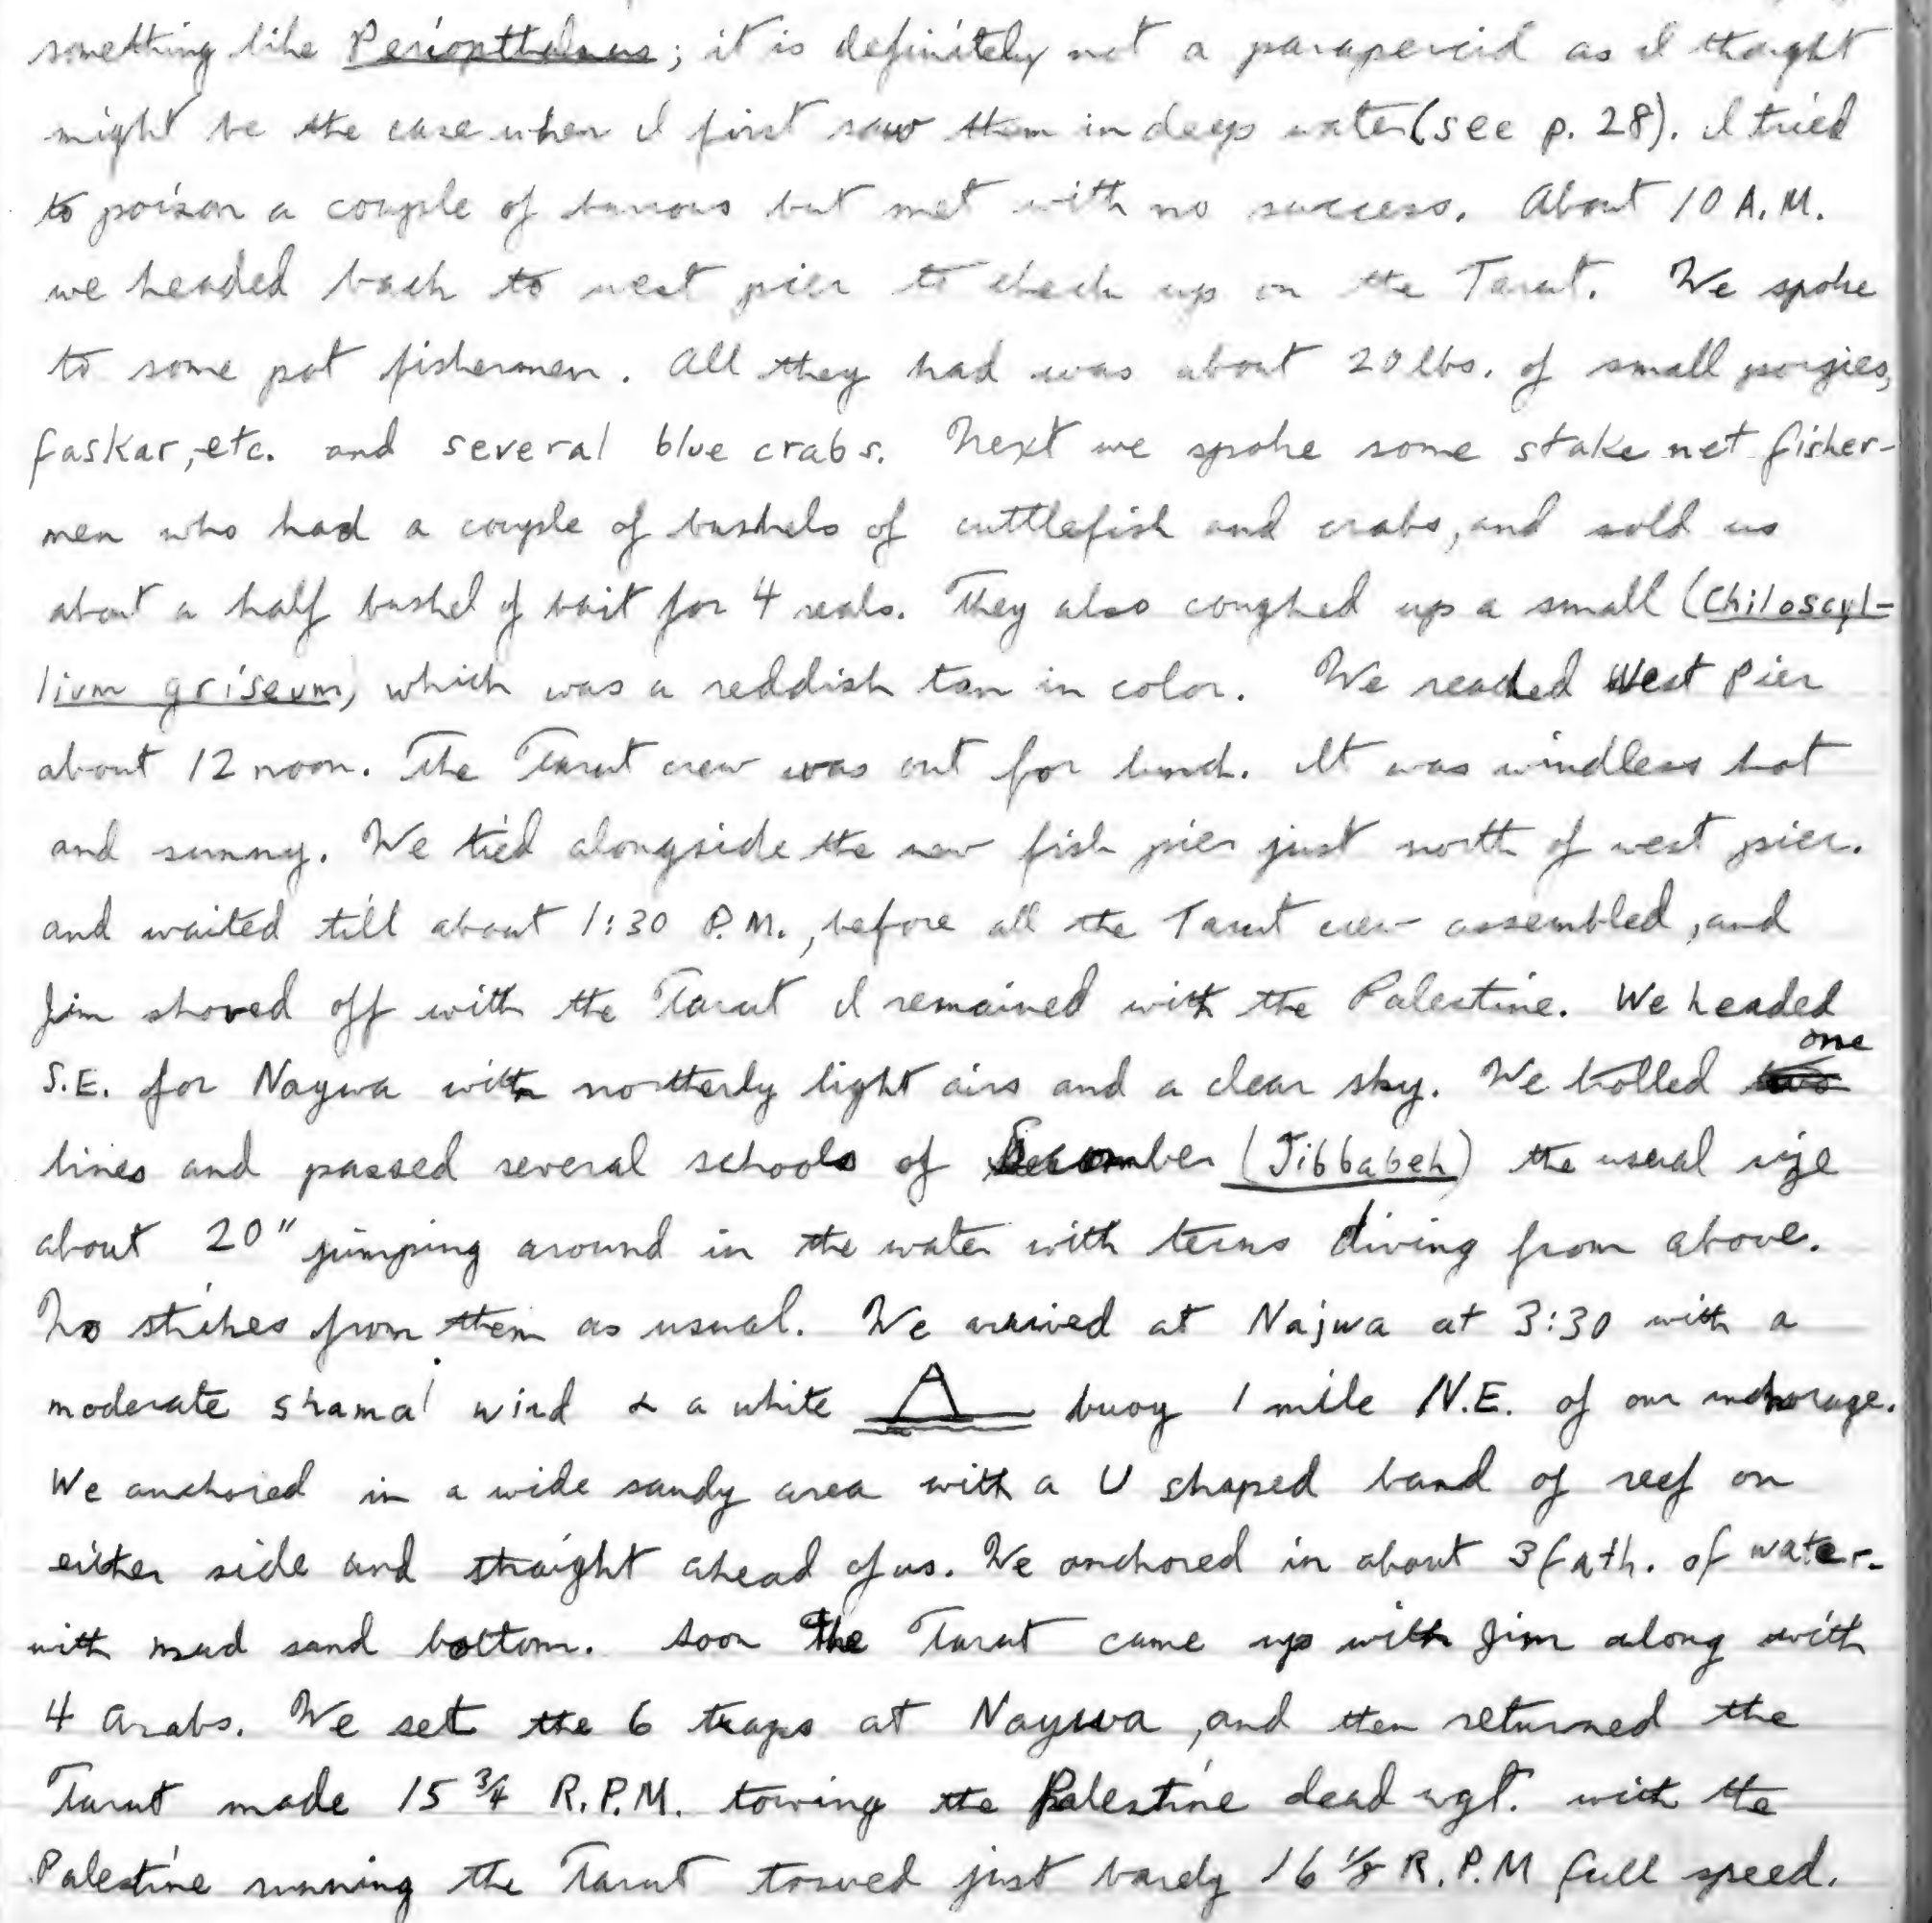 something like Periopthalmus; it is definitely not a parapercid as I thought
might be the case when I first saw them in deep water (see p. 28). I tried
to poison a couple of burrows but met with no success. About 10 A.M.
we headed back to west pier to check up on the Tarut. We spoke
to some pot fishermen. All they had was about 20 lbs. of small porgies,
faskar, etc. and several blue crabs. Next we spoke some stake net fisher-
men who had a couple of bushels of cuttlefish and crabs, and sold us
about a half bushel of bait for 4 reals. They also coughed up a small (Chiloscyl-
lium griseum) which was a reddish tan in color. We reached West Pier
about 12 noon. The Tarut crew was out for lunch. It was windless hot
and sunny. We tied alongside the new fish pier just north of west pier.
and waited till about 1:30 P.M., before all the Tarut crew assembled, and
Jim shoved off with the Tarut I remained with the Palestine. We headed
S.E. for Naywa with northerly light airs and a clear sky. We trolled one
lines and passed several schools of (Jibbabeh) the usual size
about 20" jumping around in the water with terns diving from above.
No strikes from them as usual. We arrived at Najwa at 3:30 with a
moderate shamal wind & a white A buoy 1 mile N.E. of our anchorage.
We anchored in a wide sandy area with a U shaped band of reef on
either side and straight ahead of us. We anchored in about 3 fath. of water-
with mud sand bottom. Soon the Tarut came up with Jim along with
4 Arabs. We set the 6 traps at Naywa, and then returned the
Tarut made 15 3/4 R.P.M. towing the Palestine dead wgt. with the
Palestine running the Tarut towed just barely 16 1/8 R.P.M full speed.